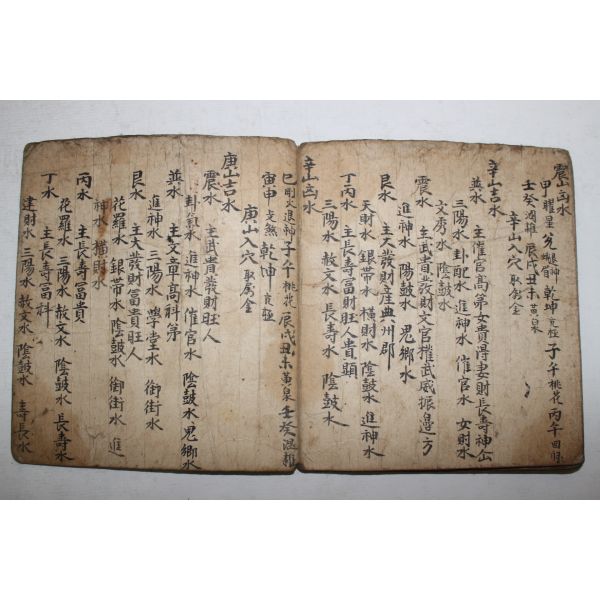 震山凶水
甲曜星 兌 退神 乾坤 亢極 子午 桃花 丙午回祿
壬癸溫㾮 辰戌丑未黃泉
辛山入穴 取屬金
辛山吉水
巽水 主催官高第女貴得妻財長壽神仙
三陽水 卦配水 進神水 催官水 女財水
文秀水 陰鼓水
震水 主武貴發財文官權武威振邊方
進神水 陽鼓水 鬼鄉水
艮水 主大發財産典州郡
天財水 銀帶水 橫財水 陰鼓水 進神水
丁丙水 主長壽富財旺人貴顯
三陽水 赦文水 長壽水 陰鼓水
辛山凶水
巳 火 進神 子午 桃花 辰戌丑未黃泉 壬癸溫㾮
寅申 文煞 乾坤 亢極
庚山入穴 取屬金
庚山吉水
震水 主武貴發財旺人
卦氣水 進神水 催官水 陰鼓水 鬼鄉水
巽水 主文章高科第
進神水 三陽水 學堂水 御街水
艮水 主大發財富貴旺人
花羅水 銀帶水 陰鼓水 御街水 進
神水 橫財水
丙水 主長壽富貴
花羅水 三陽水 赦文水 陰鼓水 長壽水
丁水 主長壽富科
建財水 三陽水 赦文水 陰鼓水 壽長水